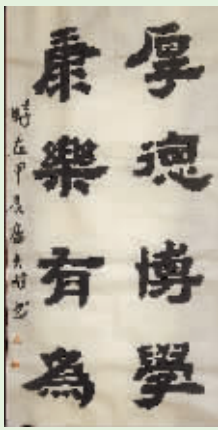 厚德博學
康樂有為
時在甲辰